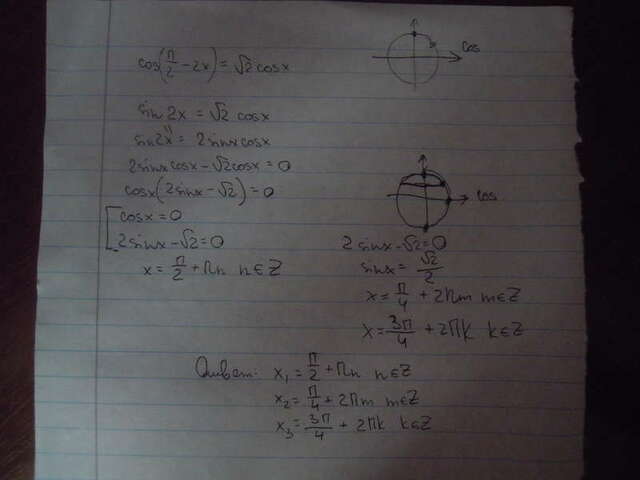 cos(π/2 - 2x) = √2 cosx
cos
sin 2x = √2 cosx
sin2x = 2sinxcosx
2sinxcosx - √2cosx = 0
cosx(2sinx - √2) = 0
cos
[cosx = 0
2sinx - √2 = 0
x = π/2 + πn n∈Z
2sinx - √2 = 0
sinx = √2/2
x = π/4 + 2πm m∈Z
x = 3π/4 + 2πk k∈Z
Ответ: x₁ = π/2 + πn n∈Z
x₂ = π/4 + 2πm m∈Z
x₃ = 3π/4 + 2πk k∈Z